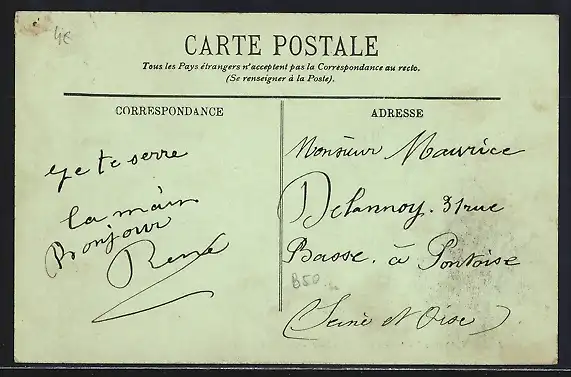 4€
CARTE POSTALE
Tous les Pays étrangers n'acceptent pas la Correspondance au recto.
(Se renseigner à la Poste).
CORRESPONDANCE
Je te serre
la main
Bonjour
René
ADRESSE
Monsieur Maurice
Delannoy. 31 rue
Basse. à Pontoise
B50
(Seine et Oise)